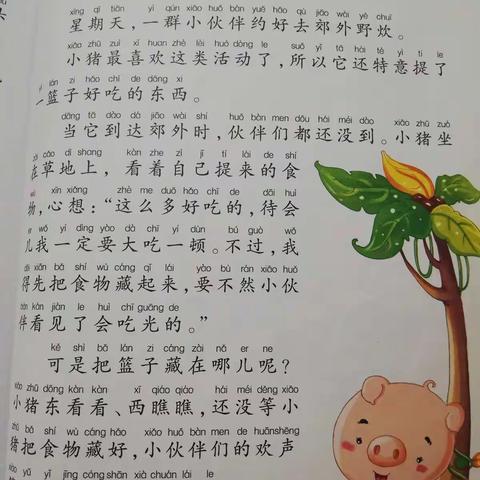 xīng qī tiān yì qún xiǎo huǒ bàn yuē hǎo qù jiāo wài yě chuī
星期天，一群小伙伴约好去郊外野炊。
xiǎo zhū zuì xǐ huan zhè lèi huó dòng le suǒ yǐ tā hái tè yì tí le
小猪最喜欢这类活动了，所以它还特意提了
yì lán zi hǎo chī de dōng xi
一篮子好吃的东西。
dāng tā dào dá jiāo wài shí huǒ bàn men dōu hái méi dào xiǎo zhū zuò
当它到达郊外时，伙伴们都还没到。小猪坐
zài cǎo dì shang kàn zhe zì jǐ tí lái de shí
在草地上，看着自己提来的食
wù xīn xiǎng zhè me duō hǎo chī de dāi huì
物，心想：“这么多好吃的，待会
er wǒ yí dìng yào dà chī yí dùn bú guò wǒ
儿我一定要大吃一顿。不过，我
děi xiān bǎ shí wù cáng qǐ lái yào bù rán xiǎo huǒ
得先把食物藏起来，要不然小伙
bàn kàn jiàn le huì chī guāng de
伴看见了会吃光的。”
kě shì bǎ lán zi cáng zài nǎ er ne
可是把篮子藏在哪儿呢？
xiǎo zhū dōng kàn kàn xī qiáo qiáo hái méi děng xiǎo
小猪东看看、西瞧瞧，还没等小
zhū bǎ shí wù cáng hǎo xiǎo huǒ bàn men de huānshēng
猪把食物藏好，小伙伴们的欢声
xiào yǔ yǐ jīng cóng shān xià chuán lái le